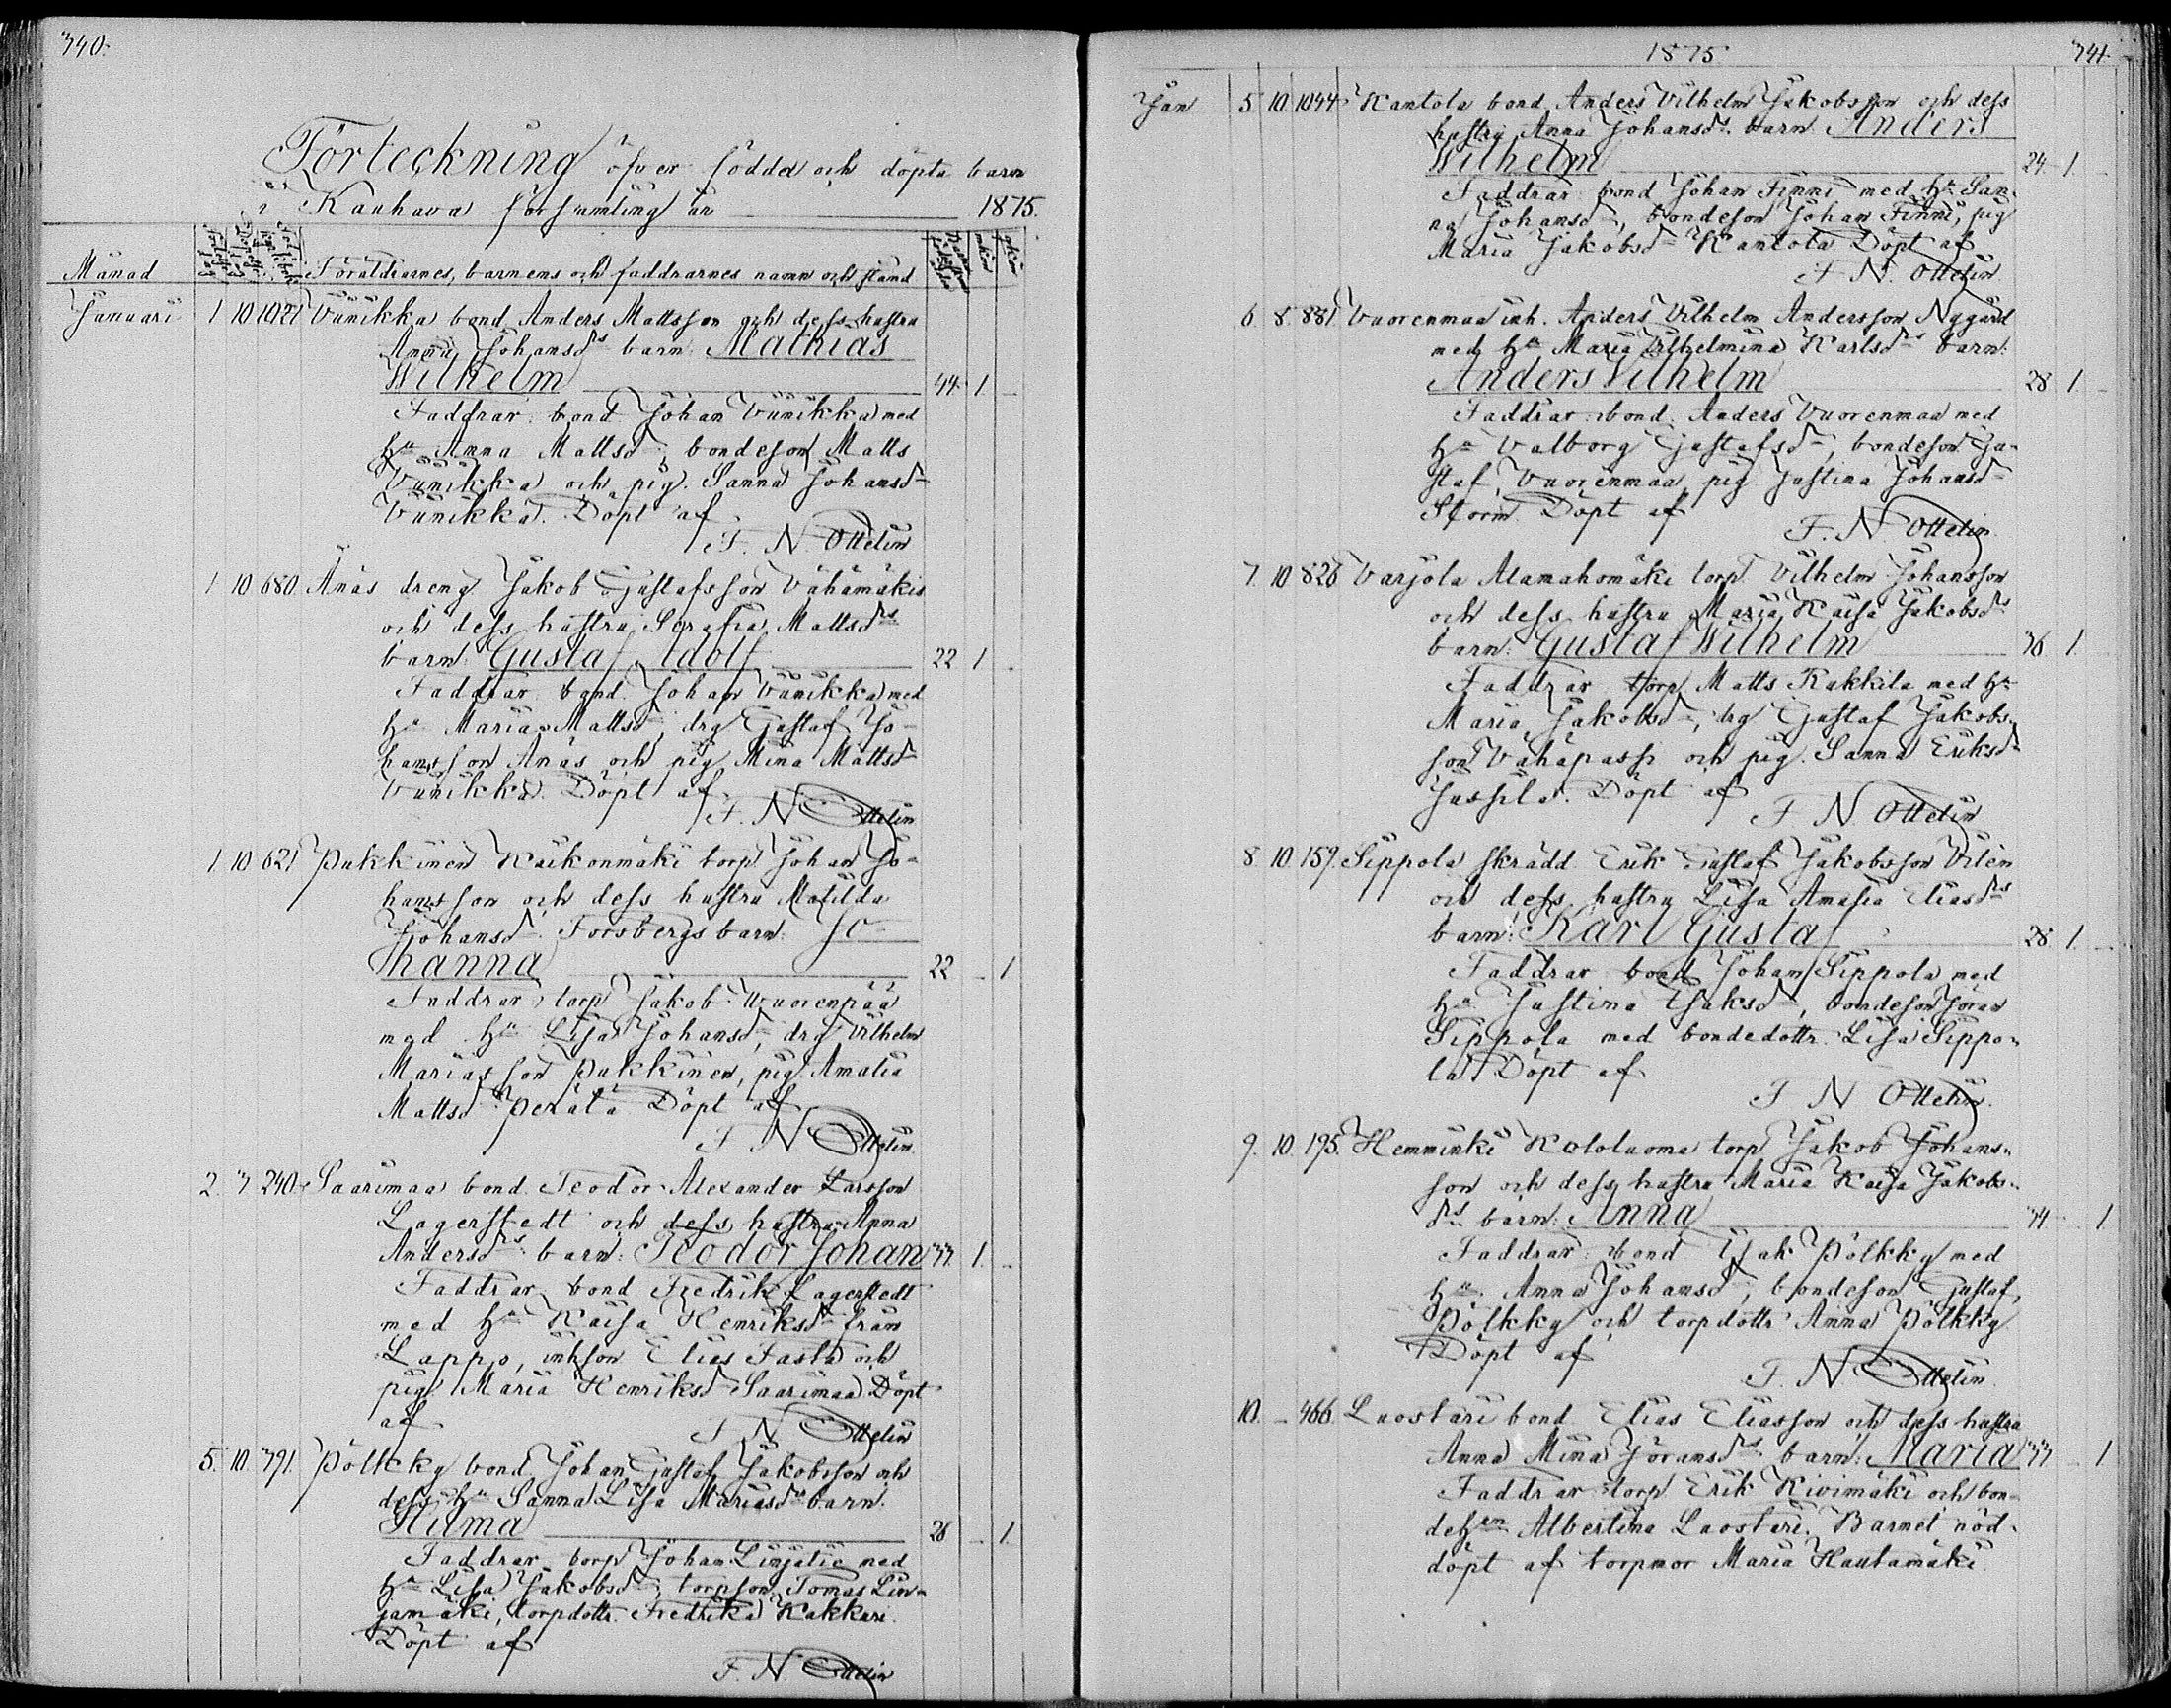 340.
Förteckning öfver födda och döpta barn
i Kauhava församling år 1875.
Månad
Föräldrarnes, barnens och faddrarnes namn och stånd
Januari 1 10 1021 Vünikka bond. Anders Mattsson och dess hustru
Anna Johansdrs barn: Mathias
Wilhelm 44. 1. -
Faddrar: bond. Johan Vünikka med
hu Anna Mattsdr, bondeson Matts
Vünikka och pig. Sanna Johansdr
Vünikka. Döpt af
F. N. Ottelin
1 10 680. Änäs dreng Jakob Gustafsson Vähämäkis
och dess hustru Serafia Mattsdrs
barn: Gustaf Adolf 22 1 -
Faddrar bond. Johan Vünikka med
hu Maria Mattsdr, drg Gustaf Jo-
hansson Änäs och pig Mina Mattsdr
Vünikka. Döpt af
F. N. Ottelin
1 10 621 Pukkinen Kaikonmäki torp Johan Jo-
hansson och dess hustru Matilda
Johansdr Forsbergs barn: Jo-
hanna 22 - 1
Faddrar torp Jakob Vuorenpää
med hu Lisa Johansdr, drg Vilhelm
Mariasson Pukkinen, pig. Amalia
Mattsdr Perätä Döpt af
F N Ottelin
2. 3 240. Saarimaa bond. Teodor Alexander Larsson
Lagerstedt och dess hustru Anna
Andersdrs barn: Teodor Johan 33. 1. -
Faddrar bond Fredrik Lagerstedt
med hu Kaisa Henriksdr från
Lappo, inhson Elias Fasta och
pig Maria Henriksdr Saarimaa Döpt
af F N Ottelin
5. 10. 391. Pölkky bond. Johan Gustaf Jakobsson och
dess hu Sanna Lisa Mariasdrs barn.
Hilma 26 - 1.
Faddrar torp Johan Linjatie med
hu Lisa Jakobsdr, torpson Tomas Lin-
jamäki, torpdottr. Fredrika Kakkuri.
Döpt af
F. N. Ottelin
1875 341.
Jan 5 10 1044 Kantola bond. Anders Vilhelm Jakobsson och dess
hustru Anna Johansdrs barn Anders
Wilhelm 24 - 1.
Faddrar bond Johan Finni med hu San-
na Johansdr, bondeson Johan Finni, pig
Maria Jakobsdr Kantola Döpt af
F N. Ottelin
6. 8. 881. Vuorenmaa inh. Anders Vilhelm Andersson Nygård
med hu Maria Vilhelmina Karlsdrs barn:
Anders Vilhelm 28 1. -
Faddrar: bond. Anders Vuorenmaa med
hu Valborg Gustafsdr, bondeson Gu-
staf Vuorenmaa, pig Justina Johansdr
Storm. Döpt af
F. N. Ottelin
7. 10 826 Varjola Alamahomäki torp. Vilhelm Johansson
och dess hustru Maria Kaisa Jakobsdrs
barn: Gustaf Wilhelm 36 1.
Faddrar torp Matts Kakkila med hu
Maria Jakobsdr, drg Gustaf Jakobs-
son Vähäpassi och pig. Sanna Eriksdr
Jussila. Döpt af
F N. Ottelin
8. 10. 159. Sippola skrädd Erik Gustaf Jakobsson Vilén
och dess hustru Lisa Amalia Eliasdrs
barn: Karl Gustaf 28. 1. -
Faddrar bond Johan Sippola med
hu Justina Isaksdr, bondeson Jöran
Sippola med bondedottr. Lisa Sippo-
la Döpt af
F N Ottelin.
9. 10. 195. Hemminki Kololuoma torp Jakob Johans-
son och dess hustru Maria Kaisa Jakobs-
drs barn: Anna 34 - 1
Faddrar: bond Isak Pölkky med
hu Anna Johansdr, bondeson Gustaf
Pölkky och torpdottr Anna Pölkky
Döpt af
F. N Ottelin.
10. - 466. Luostari bond. Elias Eliasson och dess hustru
Anna Mina Jöransdrs barn: Maria 33 - 1
Faddrar torp Erik Kivimäki och bon-
dehun Albertina Luostari. Barnet nöd-
döpt af torpmor Maria Hautamäki.